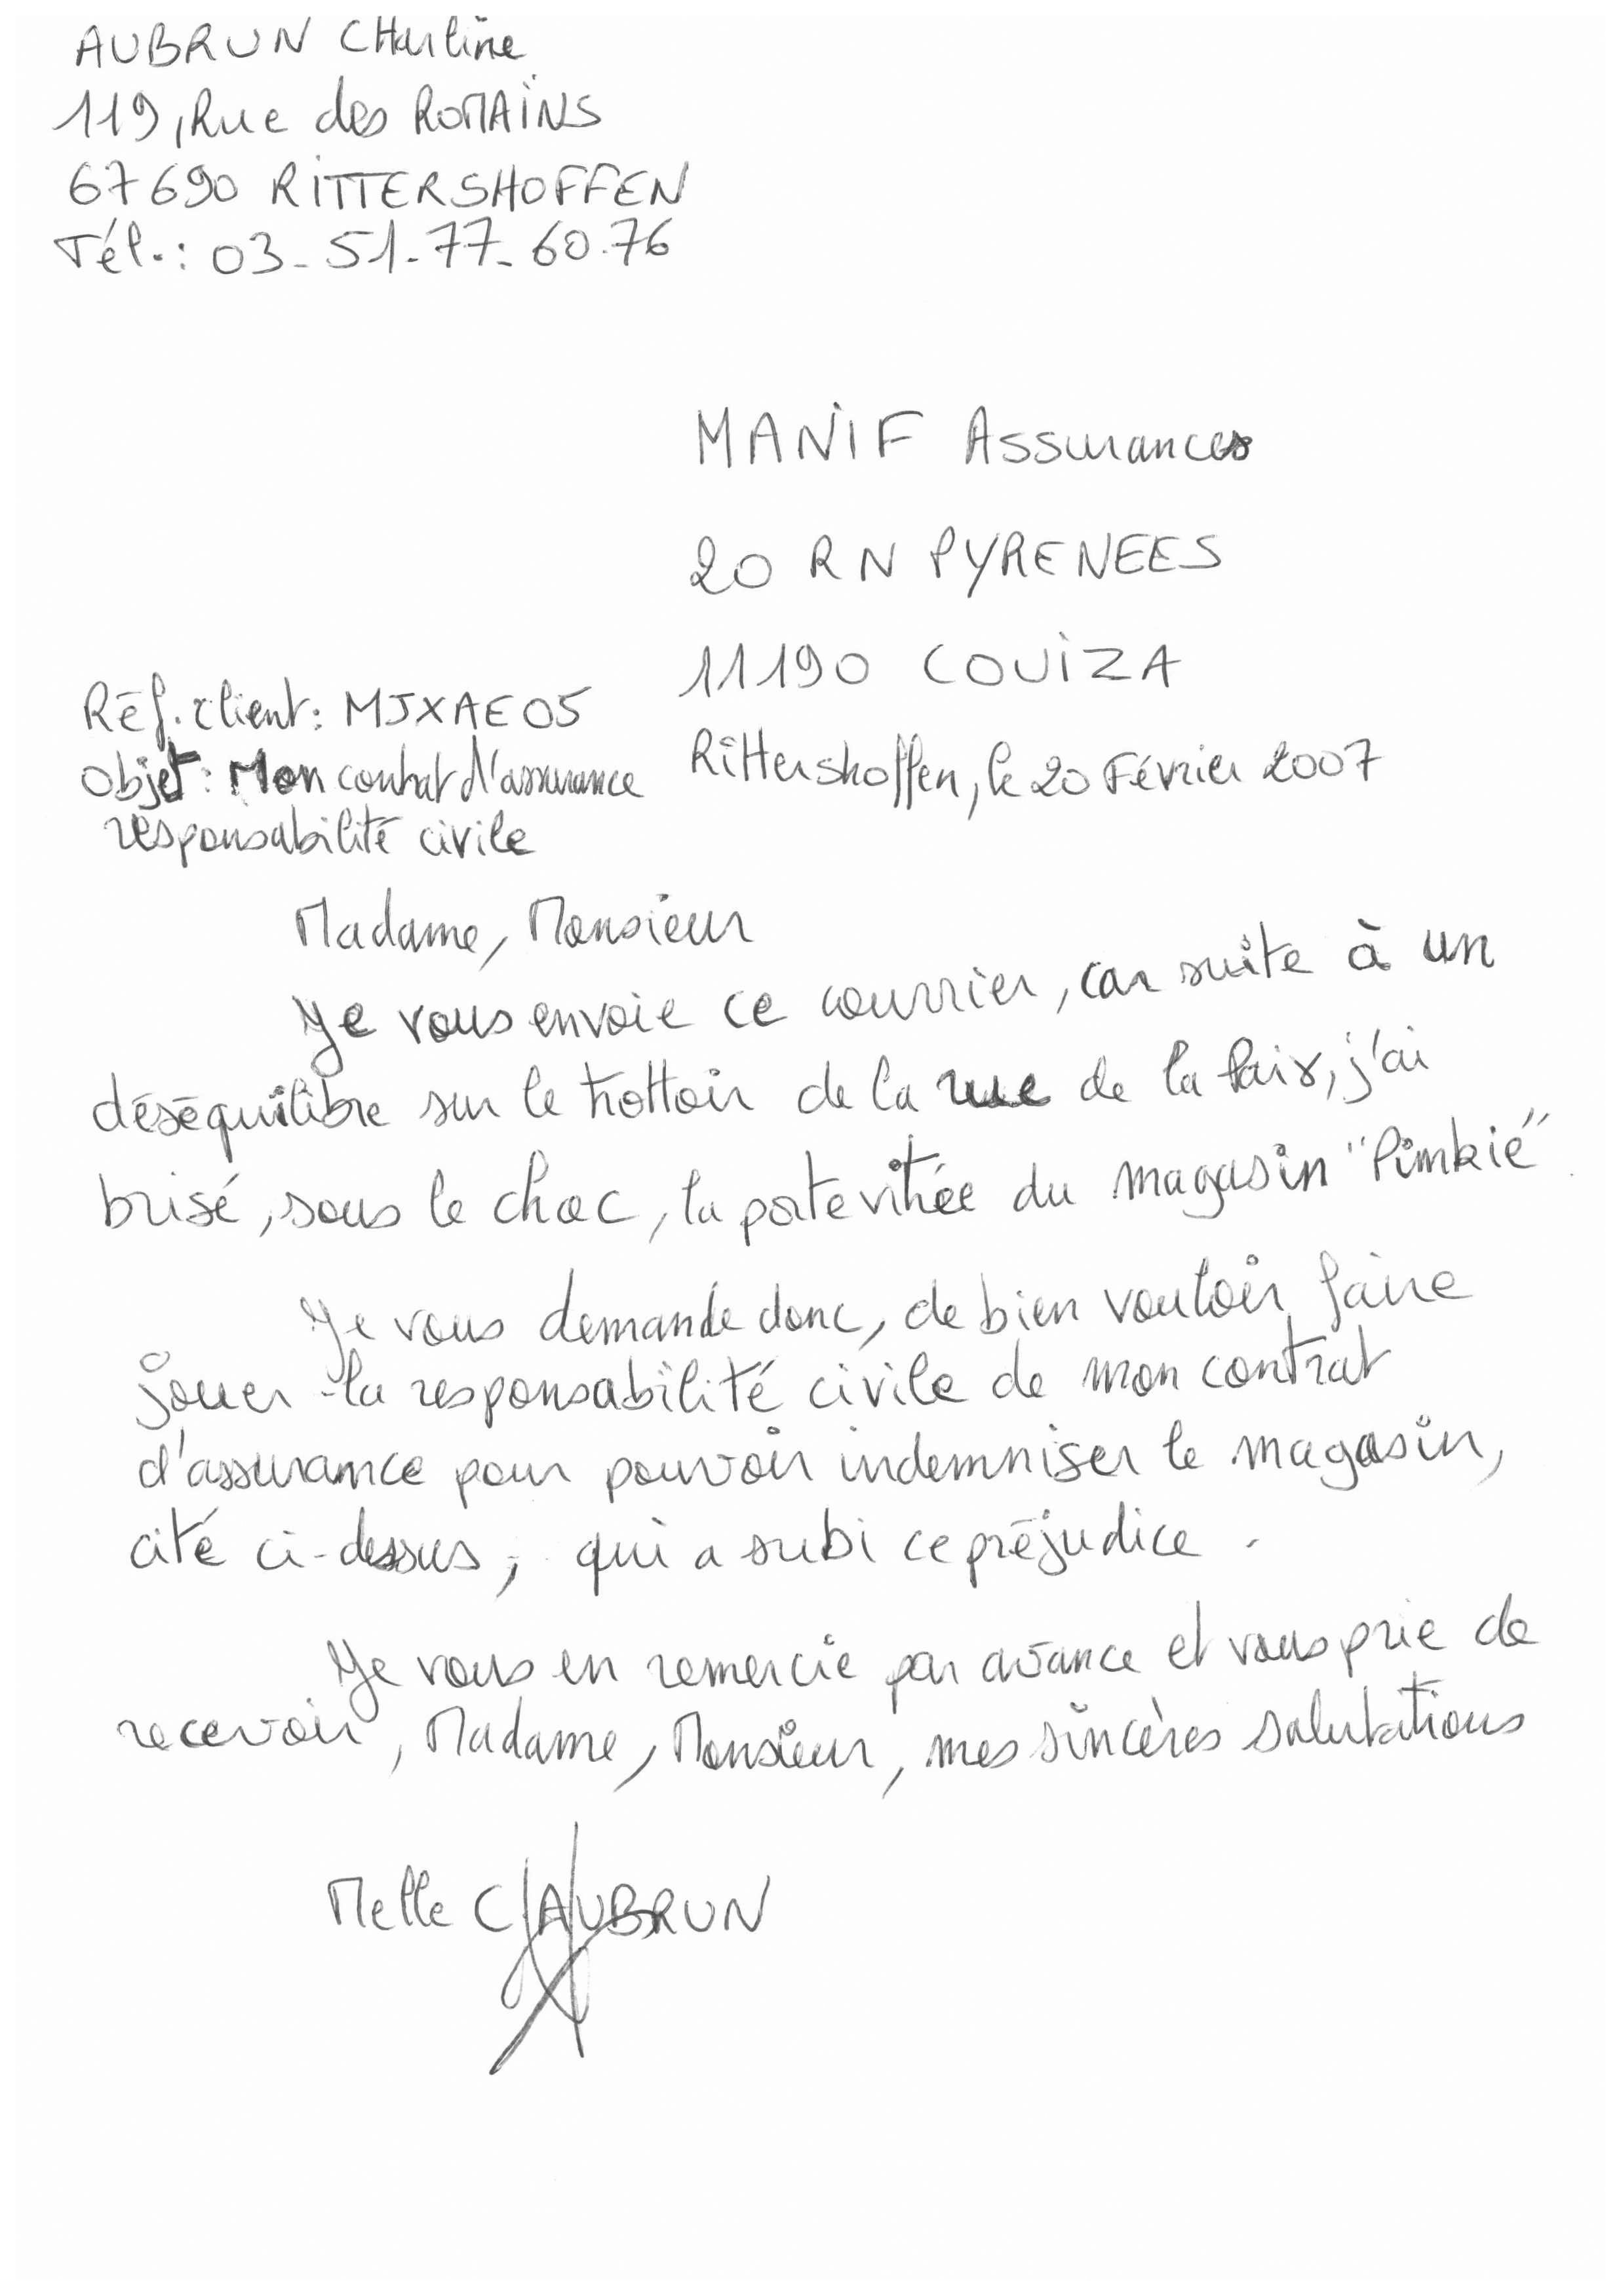 AUBRUN CHarline
119, Rue des ROMAINS
67690 RITTERSHOFFEN
Tél.: 03-51-77-60.76
MANIF Assurances
20 RN PYRENEES
11190 COUIZA
Réf. client: MJXAE05
Rittershoffen, le 20 Février 2007
Objet: Mon contrat d'assurance
responsabilité civile
Madame, Monsieur
Je vous envoie ce courrier, car suite à un
déséquilibre sur le trottoir de la rue de la Paix, j'ai
brisé, sous le choc, la porte vitrée du magasin "Pimkie".
Je vous demande donc, de bien vouloir faire
jouer la responsabilité civile de mon contrat
d'assurance pour pouvoir indemniser le magasin,
cité ci-dessus, qui a subi ce préjudice.
Je vous en remercie par avance et vous prie de
recevoir, Madame, Monsieur, mes sincères salutations
Melle C AUBRUN